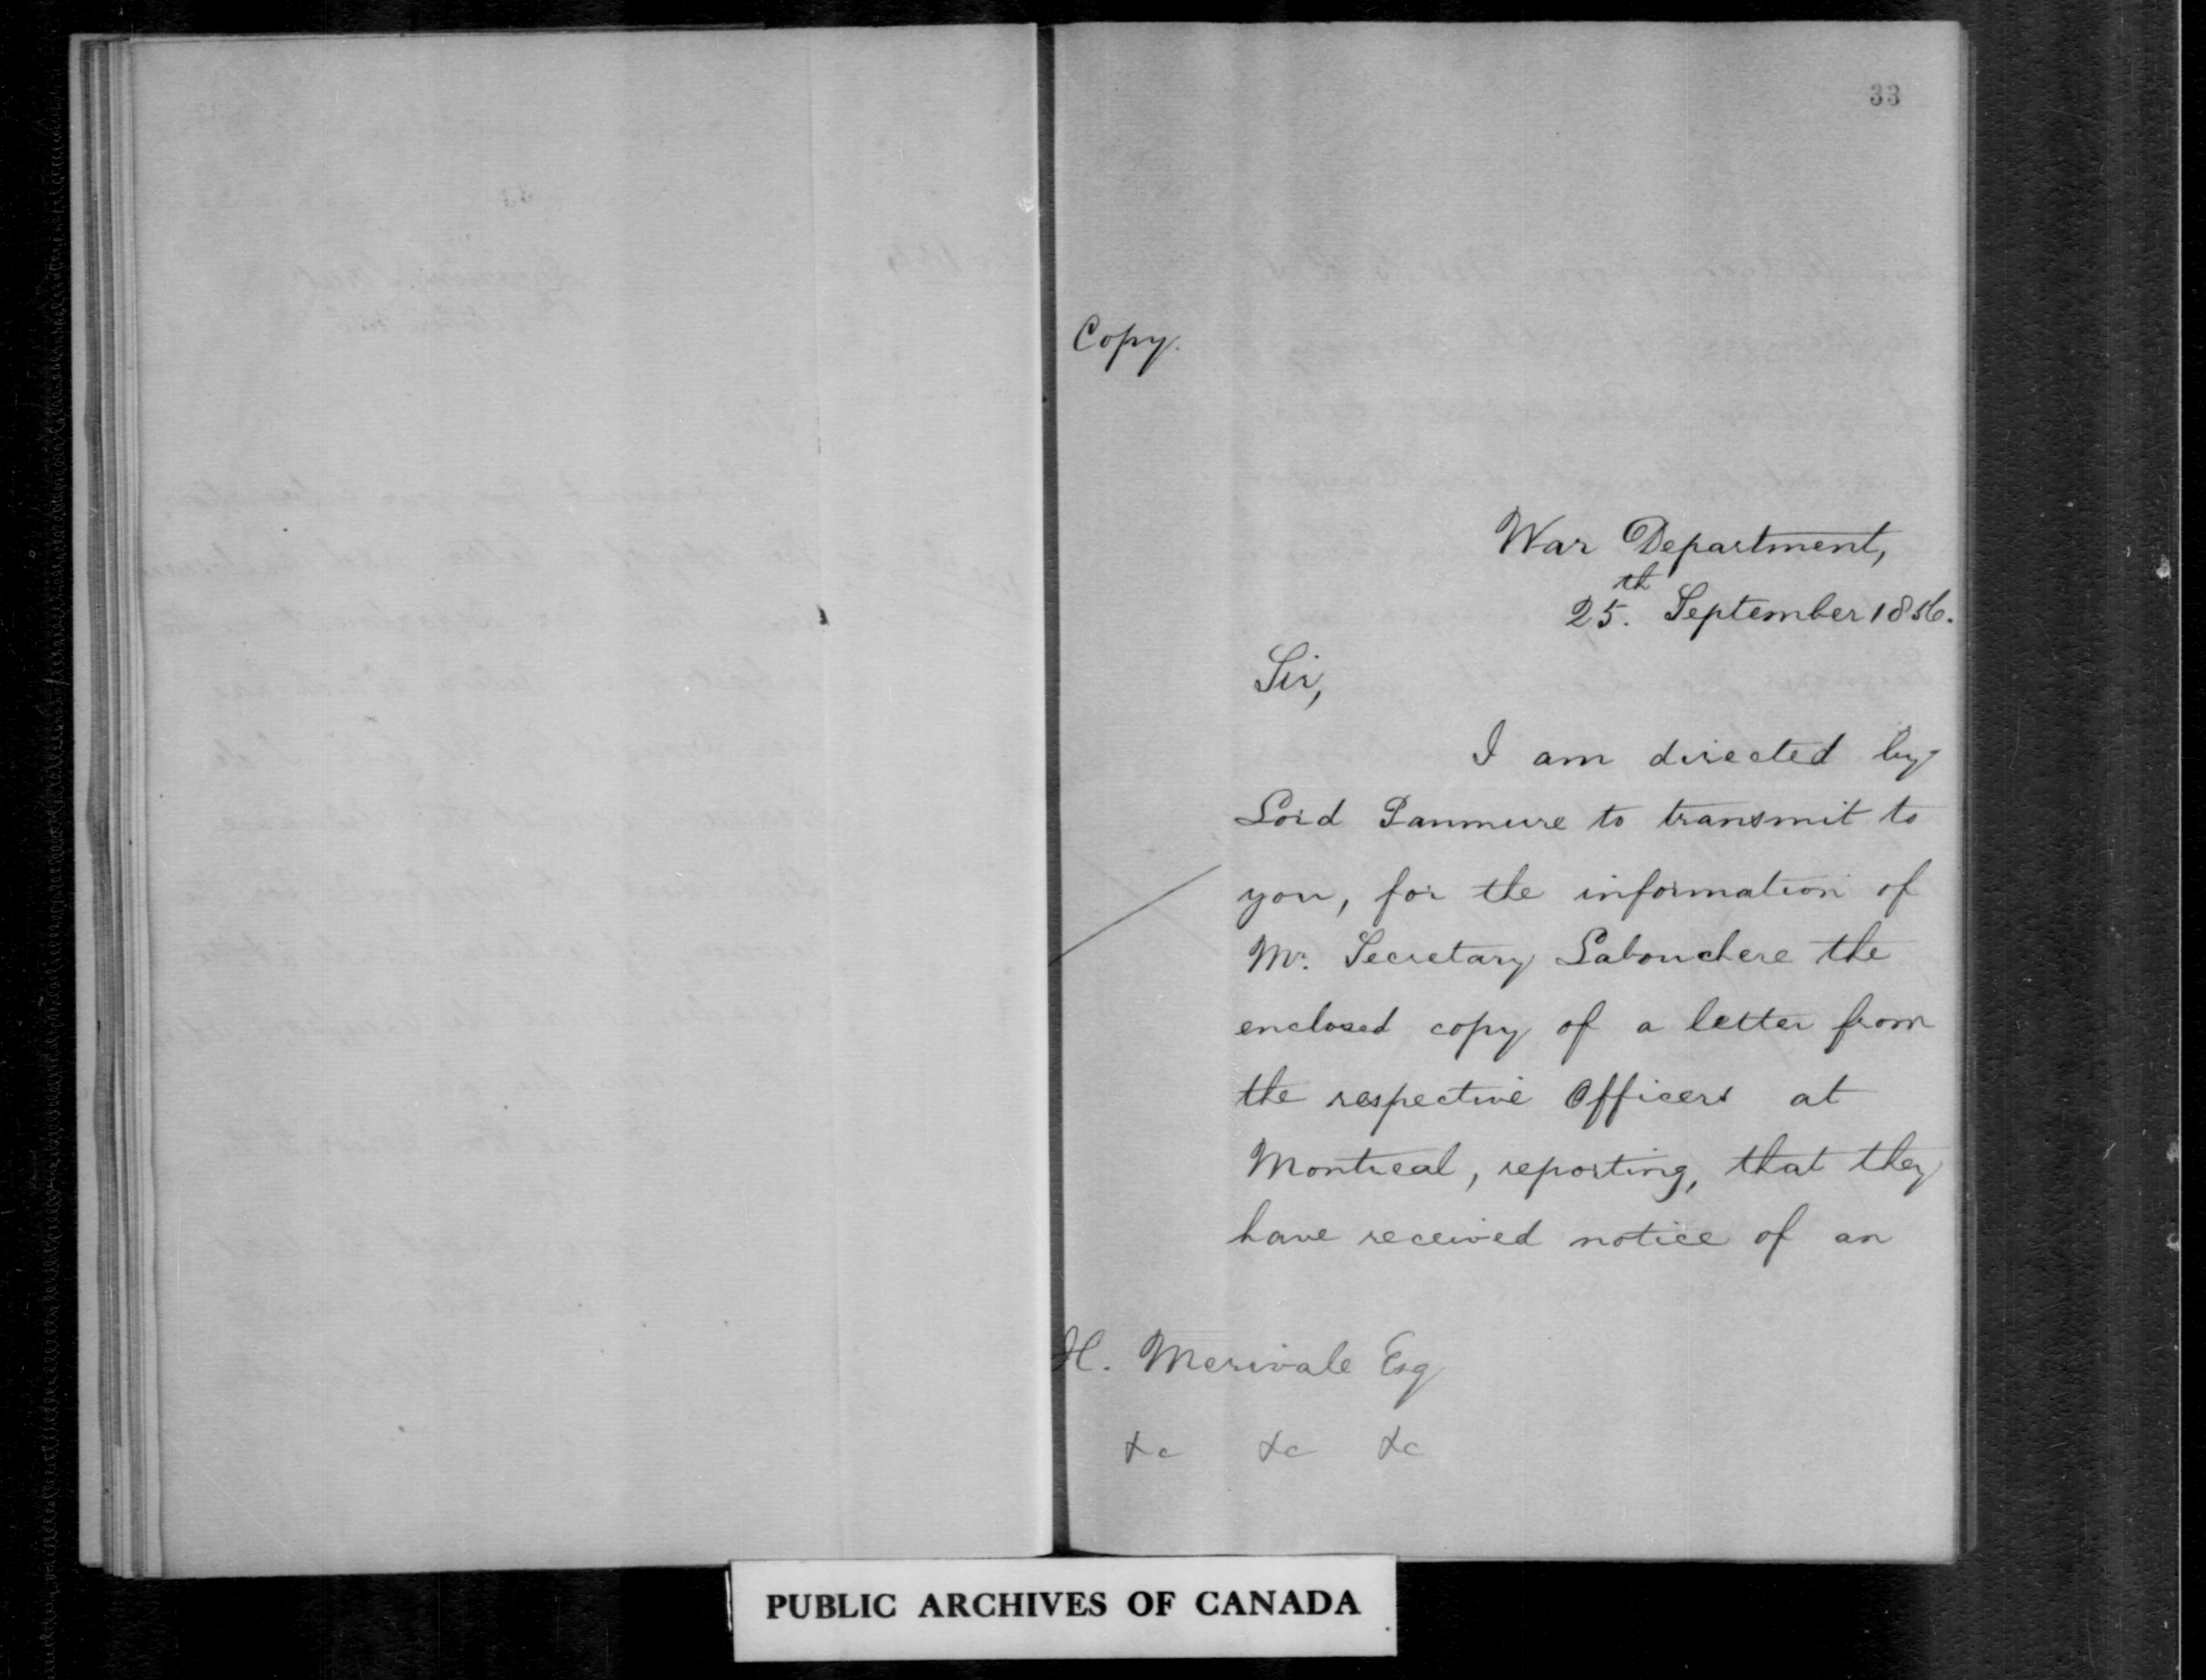 33
Copy.
War Department,
25.th September 1856.
Sir,
I am directed by
Lord Panmure to transmit to
you, for the information of
Mr. Secretary Labouchere the
enclosed copy of a letter from
the respective Officers at
Montreal, reporting, that they
have received notice of an
H. Merivale Esq
&c &c &c
PUBLIC ARCHIVES OF CANADA